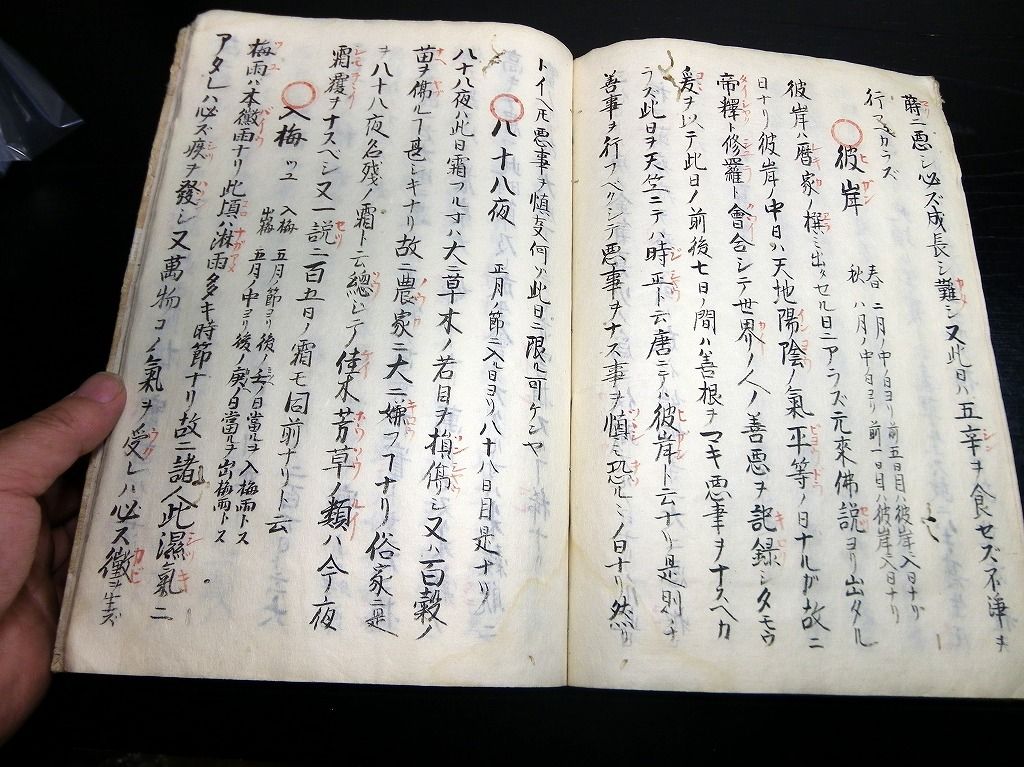 蒔ニ悪シ必ズ成長シ難シ又此日ハ五辛ヲ食セズ不浄ヲ
行フベカラズ
彼岸 春 二月ノ中日ヨリ前五日目ハ彼岸ノ入日ナリ
秋 八月ノ中日ヨリ前一日目ハ彼岸ノ入日ナリ
彼岸ハ暦家ノ撰ミ出タセル日ニアラズ元來佛説ヨリ出タル
日ナリ彼岸ノ中日ハ天地陽陰ノ氣平等ノ日ナルガ故ニ
帝釋ト修羅ト會合シテ世界ノ人ノ善悪ヲ記録シタモウ
爰ヲ以テ此日ノ前後七日ノ間ハ善根ヲマキ悪事ヲナスヘカ
ラズ此日ヲ天竺ニテハ時平ト云唐ニテハ彼岸ト云ナリ是則チ
善事ヲ行フベクシテ悪事ヲナス事ヲ慎ミ恐ルヽノ日ナリ然リ
トイヘ𪜈悪事ヲ慎支何ソ此日ニ限ル可ケンヤ
八十八夜 正月ノ節ニ入ル日ヨリ八十八日目是ナリ
八十八夜ハ此日霜フル寸ハ大ニ草木ノ若目ヲ損傷シ又ハ百穀ノ
苗ヲ傷ルヿ甚シキナリ故ニ農家ニ大ニ嫌フヿナリ俗家ニ是
ヲ八十八夜名残ノ霜ト云總シテ佳木芳草ノ類ハ今夜
霜覆ヲナスヘシ又一説ニ百五日ノ霜モ同前ナリト云
入梅 ツユ 入梅 五月ノ節ヨリ後ノ壬ノ日當ルヲ入梅雨トス
出梅 五月ノ中ヨリ後ノ庚ノ日當ルヲ出梅雨トス
梅雨ハ本黴雨ナリ此頃ハ淋雨多キ時節ナリ故ニ諸人此濕氣ニ
アタレハ必ズ疾ヲ發シ又萬物コノ氣ヲ受レハ必ス黴ヲ生ズ